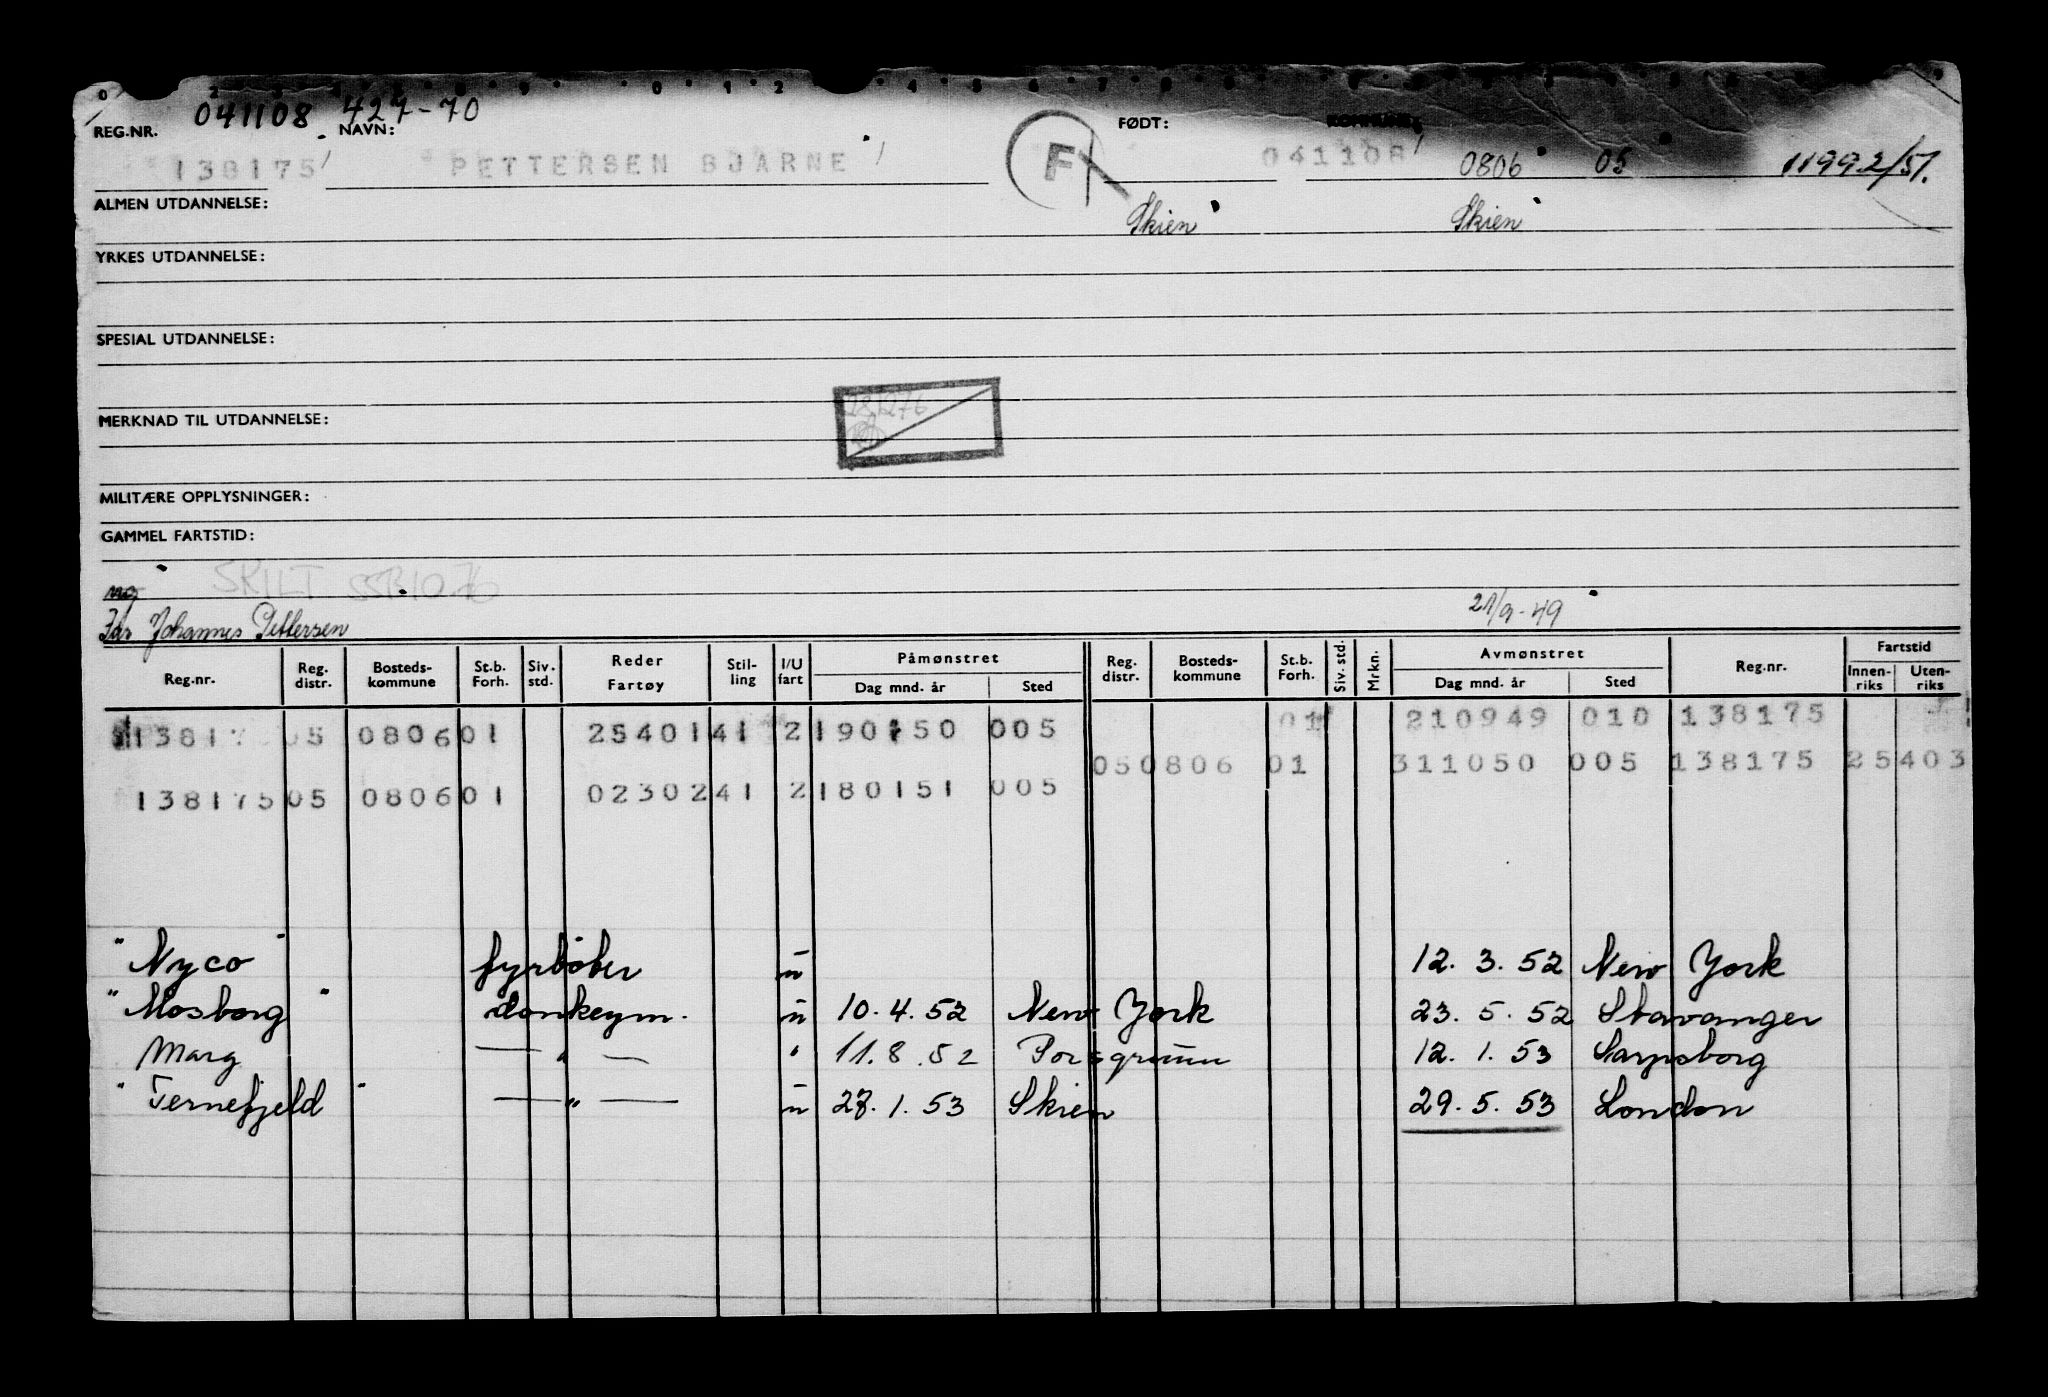 041108 427-70
REG.NR. NAVN: FØDT:
138175 PETTERSEN BJARNE F 041108 0806 05 11992/51.
ALMEN UTDANNELSE: Skien Skien
YRKES UTDANNELSE:
SPESIAL UTDANNELSE:
MERKNAD TIL UTDANNELSE:
MILITÆRE OPPLYSNINGER:
GAMMEL FARTSTID:
ng SKILT
21/9-49
Far Johannes Pettersen
Reg.nr. Reg. distr. Bosteds-kommune St.b. Forh. Siv. std. Reder Fartøy Stil-ling I/U fart Påmønstret Dag mnd. år Sted Reg. distr. Bosteds-kommune St.b. Forh. Siv. std. Mrkn. Avmønstret Dag mnd. år Sted Reg.nr. Fartstid Innen-riks Uten-riks
01 210949 010 138175
13817 05 0806 01 25401 41 2 190150 005
050806 01 311050 005 138175 25403
138175 05 0806 01 02302 41 2 180151 005
"Nyco" fyrbøter u 12. 3. 52 New York
"Mosborg" donkeym. u 10. 4. 52 New York 23. 5. 52 Stavanger
Marg — " — " 11. 8. 52 Porsgrunn 12. 1. 53 Sarpsborg
"Ternefjeld" — " — u 28. 1. 53 Skien 29. 5. 53 London